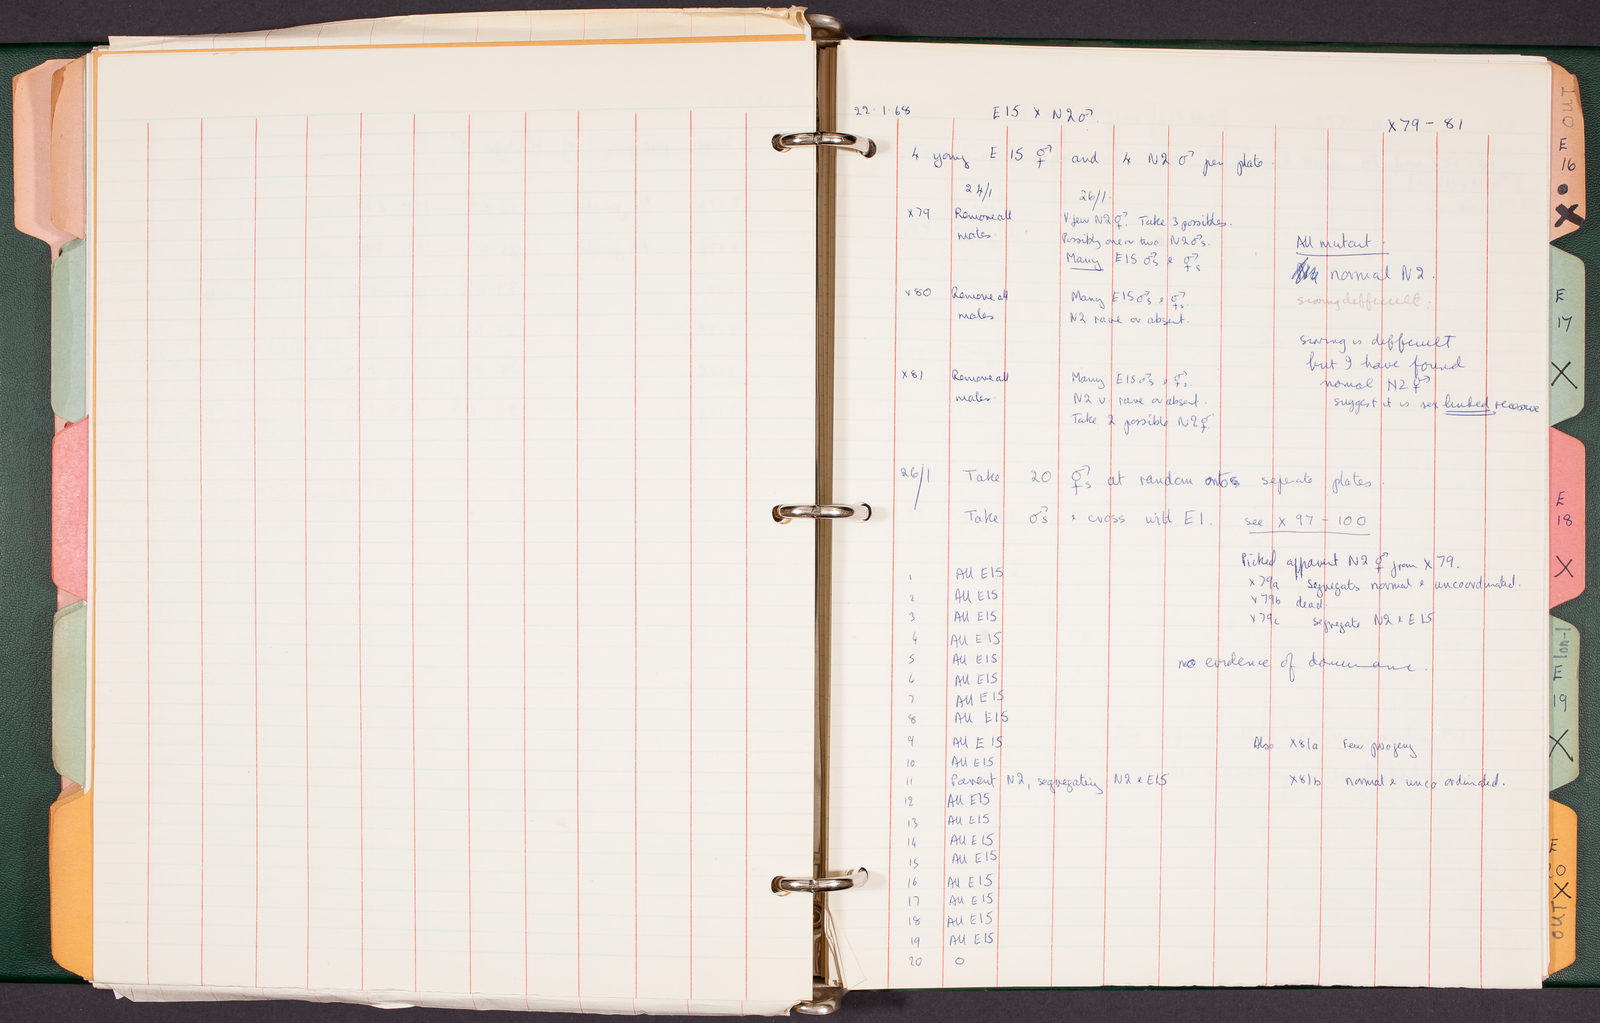 22·1·68 E15 x N2♂. X79 - 81
4 young E15 ⚥ and 4 N2 ♂ per plate.
24/1 26/1.
X79 Remove all V few N2⚥. Take 3 possibles.
males. Possibly one or two N2♂s.
Many E15 ♂s & ⚥s
All mutant.
normal N2.
scoring difficult.
X80 Remove all Many E15♂s & ⚥s.
males N2 rare or absent.
scoring is difficult
but I have found
normal N2 ⚥
suggest it is sex linked recessive
X81 Remove all Many E15♂s & ⚥s.
males. N2 v rare or absent.
Take 2 possible N2⚥.
26/1 Take 20 ⚥s at random onto seperate plates.
Take ♂s & cross with E1. see X 97 - 100
Picked apparent N2 ⚥ from X79.
X79a Segregates normal & uncoordinated.
X79b dead.
X79c segregate N2 & E15
no evidence of dominance.
Also X81a Few progeny
X81b normal & uncoordinated.
1 All E15
2 All E15
3 All E15
4 All E15
5 All E15
6 All E15
7 All E15
8 All E15
9 All E15
10 All E15
11 Parent N2, segregating N2 & E15
12 All E15
13 All E15
14 All E15
15 All E15
16 All E15
17 All E15
18 All E15
19 All E15
20 0
E
16
E
17
X
E
18
X
lon-1
E
19
X
E
20
X
OUT